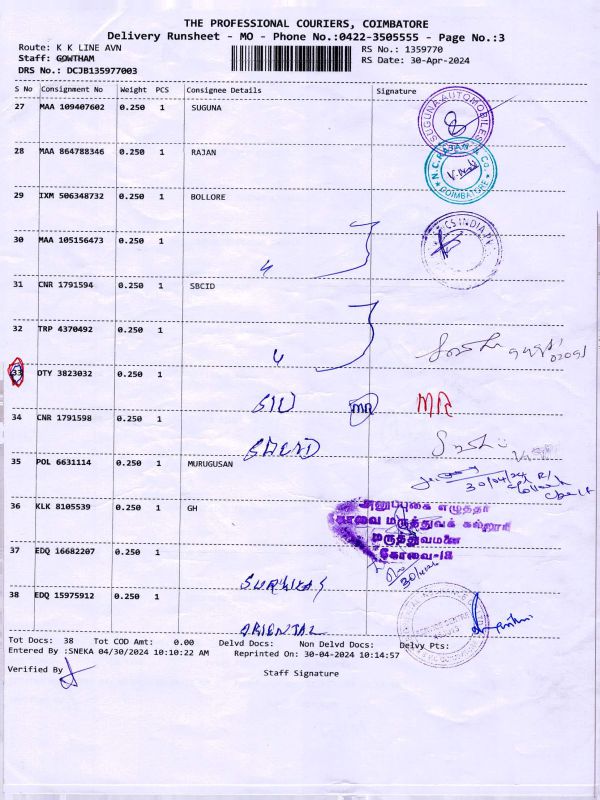 THE PROFESSIONAL COURIERS, COIMBATORE
Delivery Runsheet - MO - Phone No.:0422-3505555 - Page No.:3
Route: K K LINE AVN
RS No.: 1359770
Staff: GOWTHAM
RS Date: 30-Apr-2024
DRS No.: DCJB135977003
S No Consignment No Weight PCS Consignee Details Signature
27 MAA 109407602 0.250 1 SUGUNA
SUGUNA AUTOMOBILES
28 MAA 864788346 0.250 1 RAJAN
N.C. RAJAN & Co. COIMBATORE
29 IXM 506348732 0.250 1 BOLLORE
30 MAA 105156473 0.250 1
31 CNR 1791594 0.250 1 SBCID
32 TRP 4370492 0.250 1
33 DTY 3823032 0.250 1
MR MR
34 CNR 1791598 0.250 1
35 POL 6631114 0.250 1 MURUGUSAN
30/04/24
36 KLK 8105539 0.250 1 GH
அனுப்புகை எழுத்தர்
கோவை மருத்துவக் கல்லூரி
மருத்துவமனை
கோவை-18
37 EDQ 16682207 0.250 1
38 EDQ 15975912 0.250 1
ORIENTAL
Tot Docs: 38 Tot COD Amt: 0.00 Delvd Docs: Non Delvd Docs: Delvy Pts:
Entered By :SNEKA 04/30/2024 10:10:22 AM Reprinted On: 30-04-2024 10:14:57
Verified By
Staff Signature